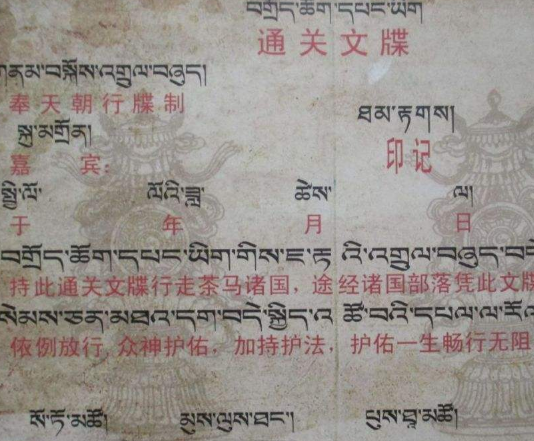 བགྲོད་ཆོག་དཔང་ཡིག
通关文牒
གནམ་བསྐོས་འགྲུལ་བཞུད།
奉天朝行牒制
ཐམ་རྟགས།
སྐུ་མགྲོན།
印记
嘉宾:
སྤྱི་ལོ་ ལོའི་ཟླ་ ཚེས་ ལ།
于 年 月 日
བགྲོད་ཆོག་དཔང་ཡིག་གིས་ཇ་རྟ
持此通关文牒行走茶马诸国,途经诸国部落凭此文牒
སེམས་ཅན་མཐའ་དག་བདེ་སྐྱིད་འ
依例放行,众神护佑,加持护法,护佑一生畅行无阻